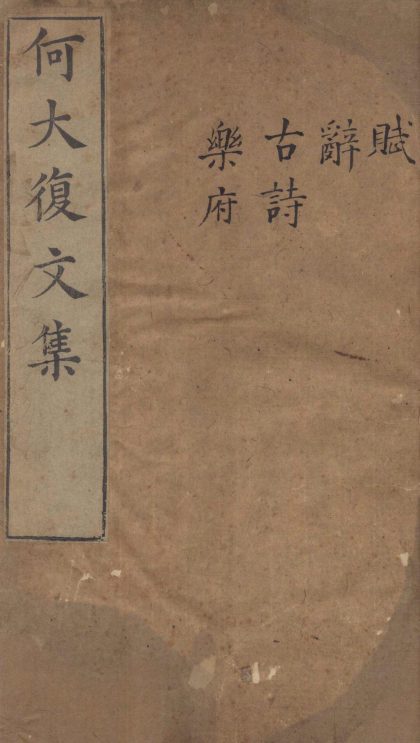 何大復文集
賦
辭
古詩
樂府